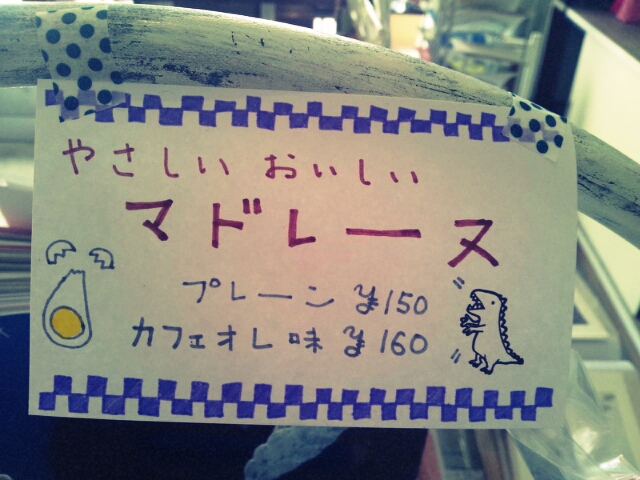 やさしい おいしい
マドレーヌ
プレーン ¥150
カフェオレ味 ¥160